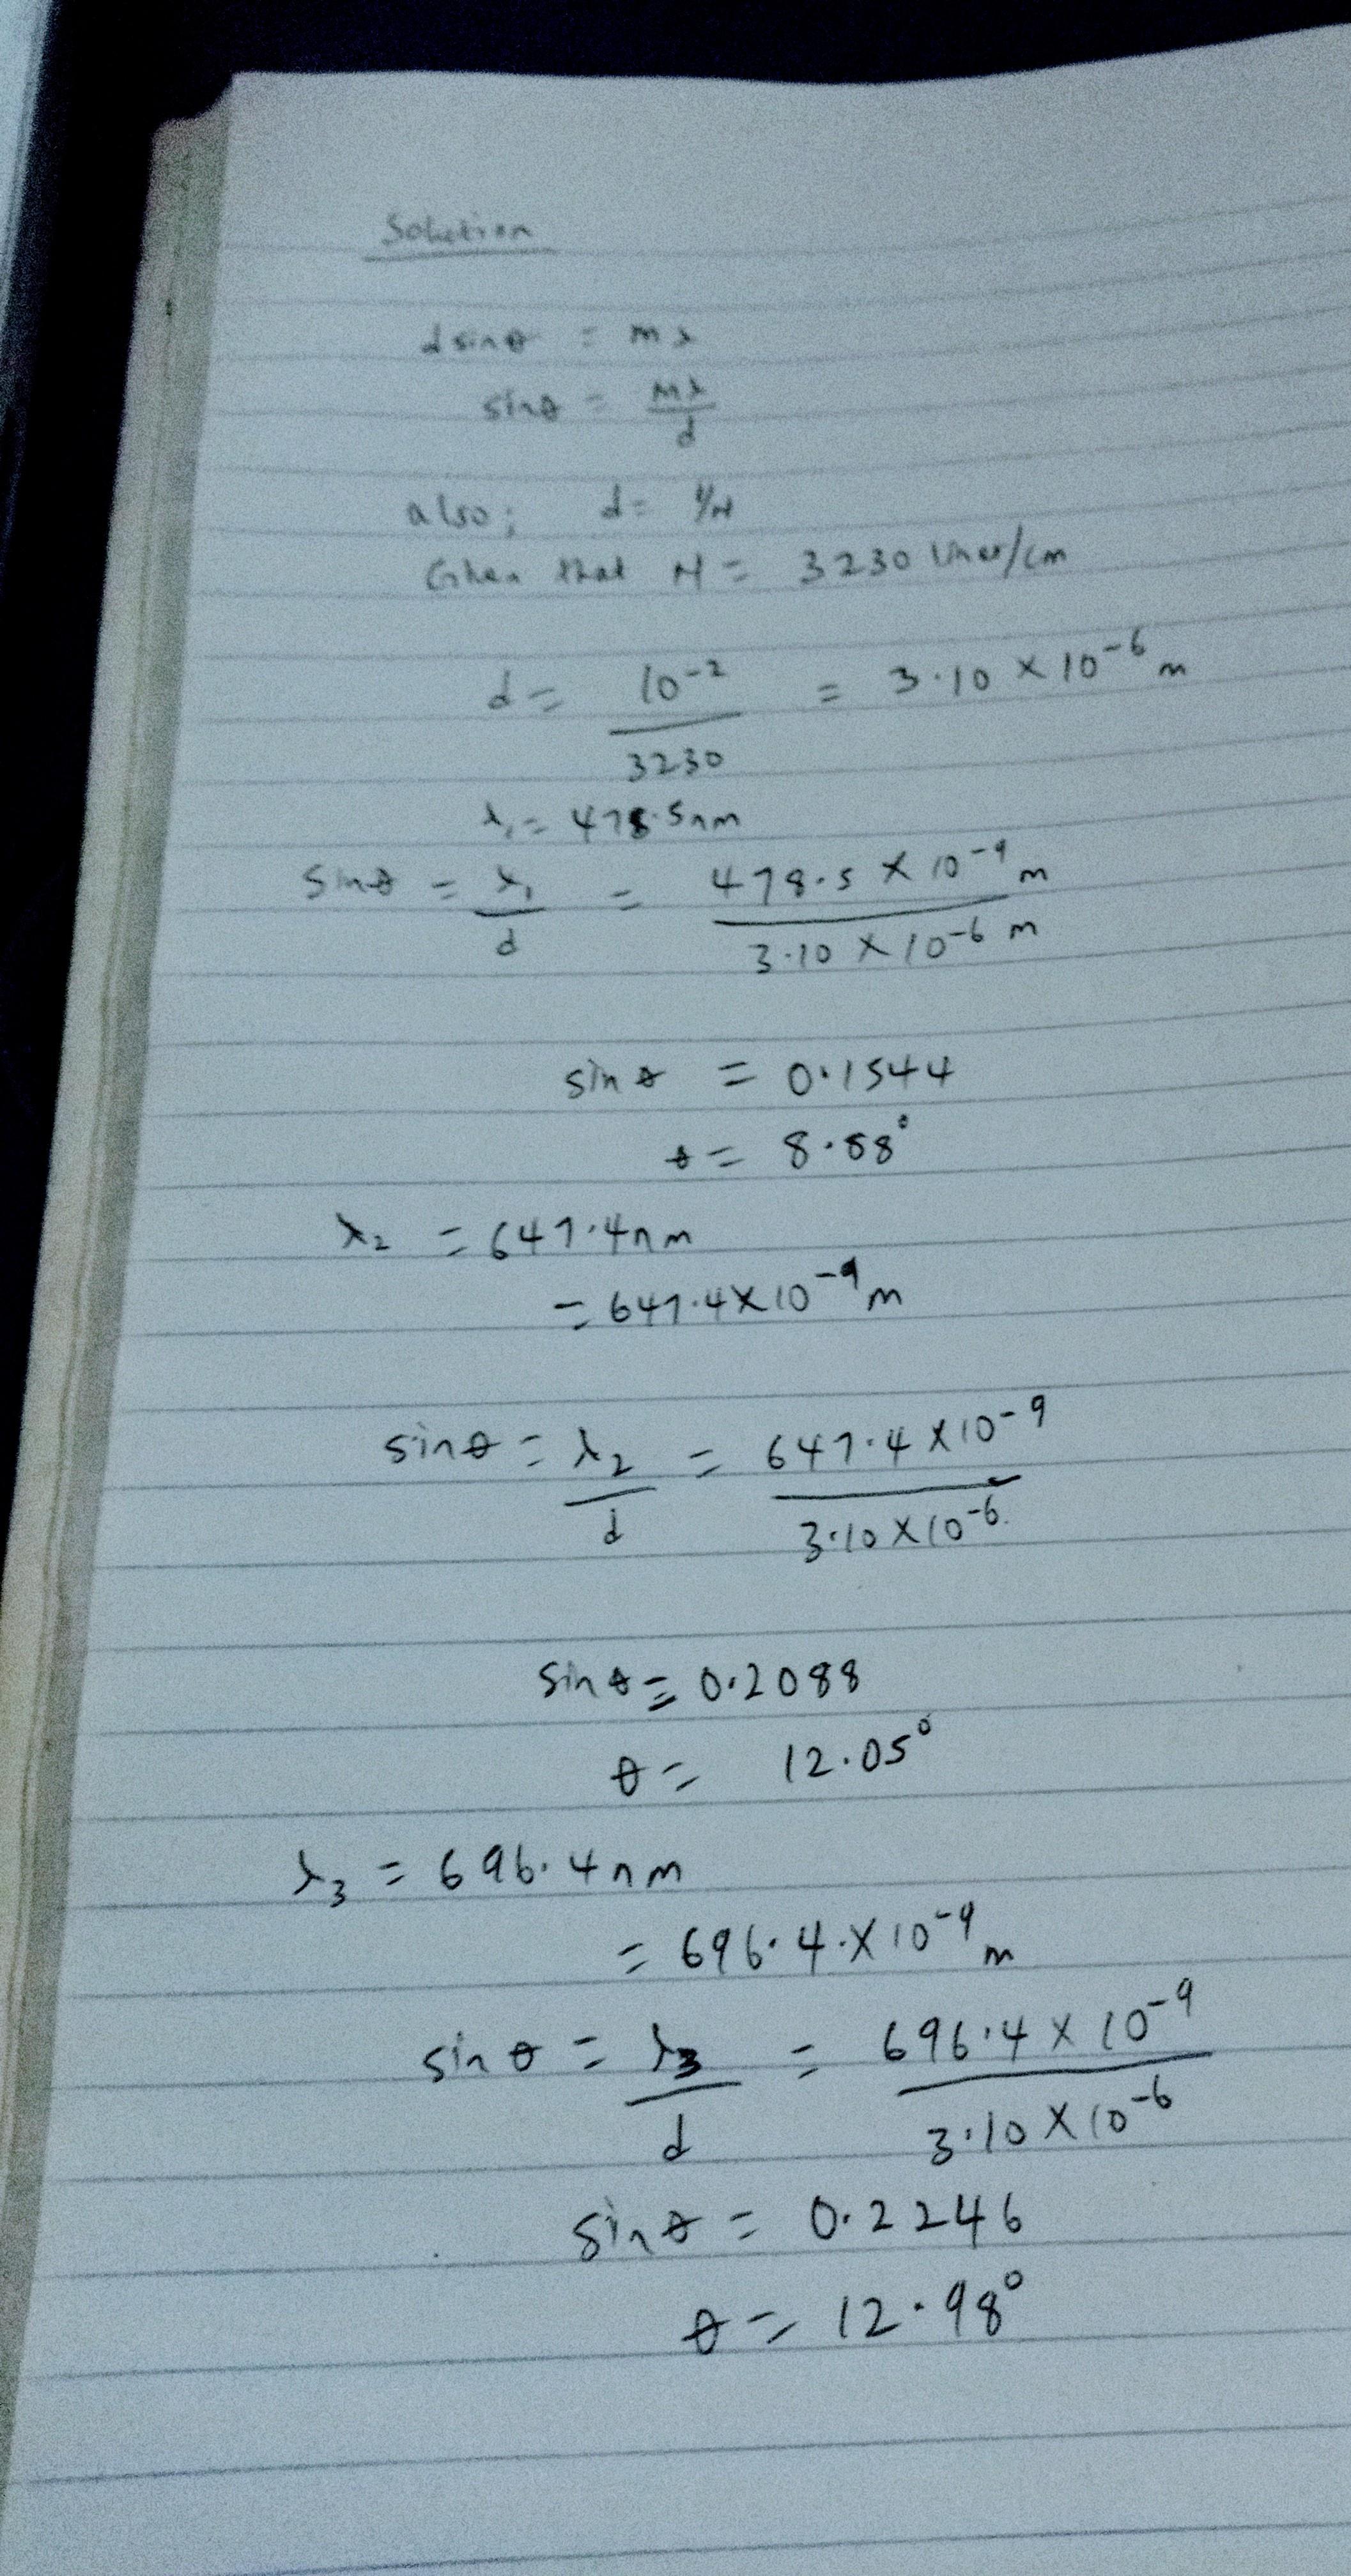 Solution
dsinθ = mλ
sinθ = mλ/d
also; d = 1/N
Given that N = 3230 lines/cm
d = 10⁻²/3230 = 3.10 × 10⁻⁶ m
λ₁ = 478.5nm
sinθ = λ₁/d = 478.5 × 10⁻⁹ m/3.10 × 10⁻⁶ m
sinθ = 0.1544
θ = 8.88°
λ₂ = 647.4nm
= 647.4×10⁻⁹ m
sinθ = λ₂/d = 647.4 × 10⁻⁹/3.10 × 10⁻⁶
sinθ = 0.2088
θ = 12.05°
λ₃ = 696.4nm
= 696.4.×10⁻⁹ m
sinθ = λ₃/d = 696.4 × 10⁻⁹/3.10 × 10⁻⁶
sinθ = 0.2246
θ = 12.98°